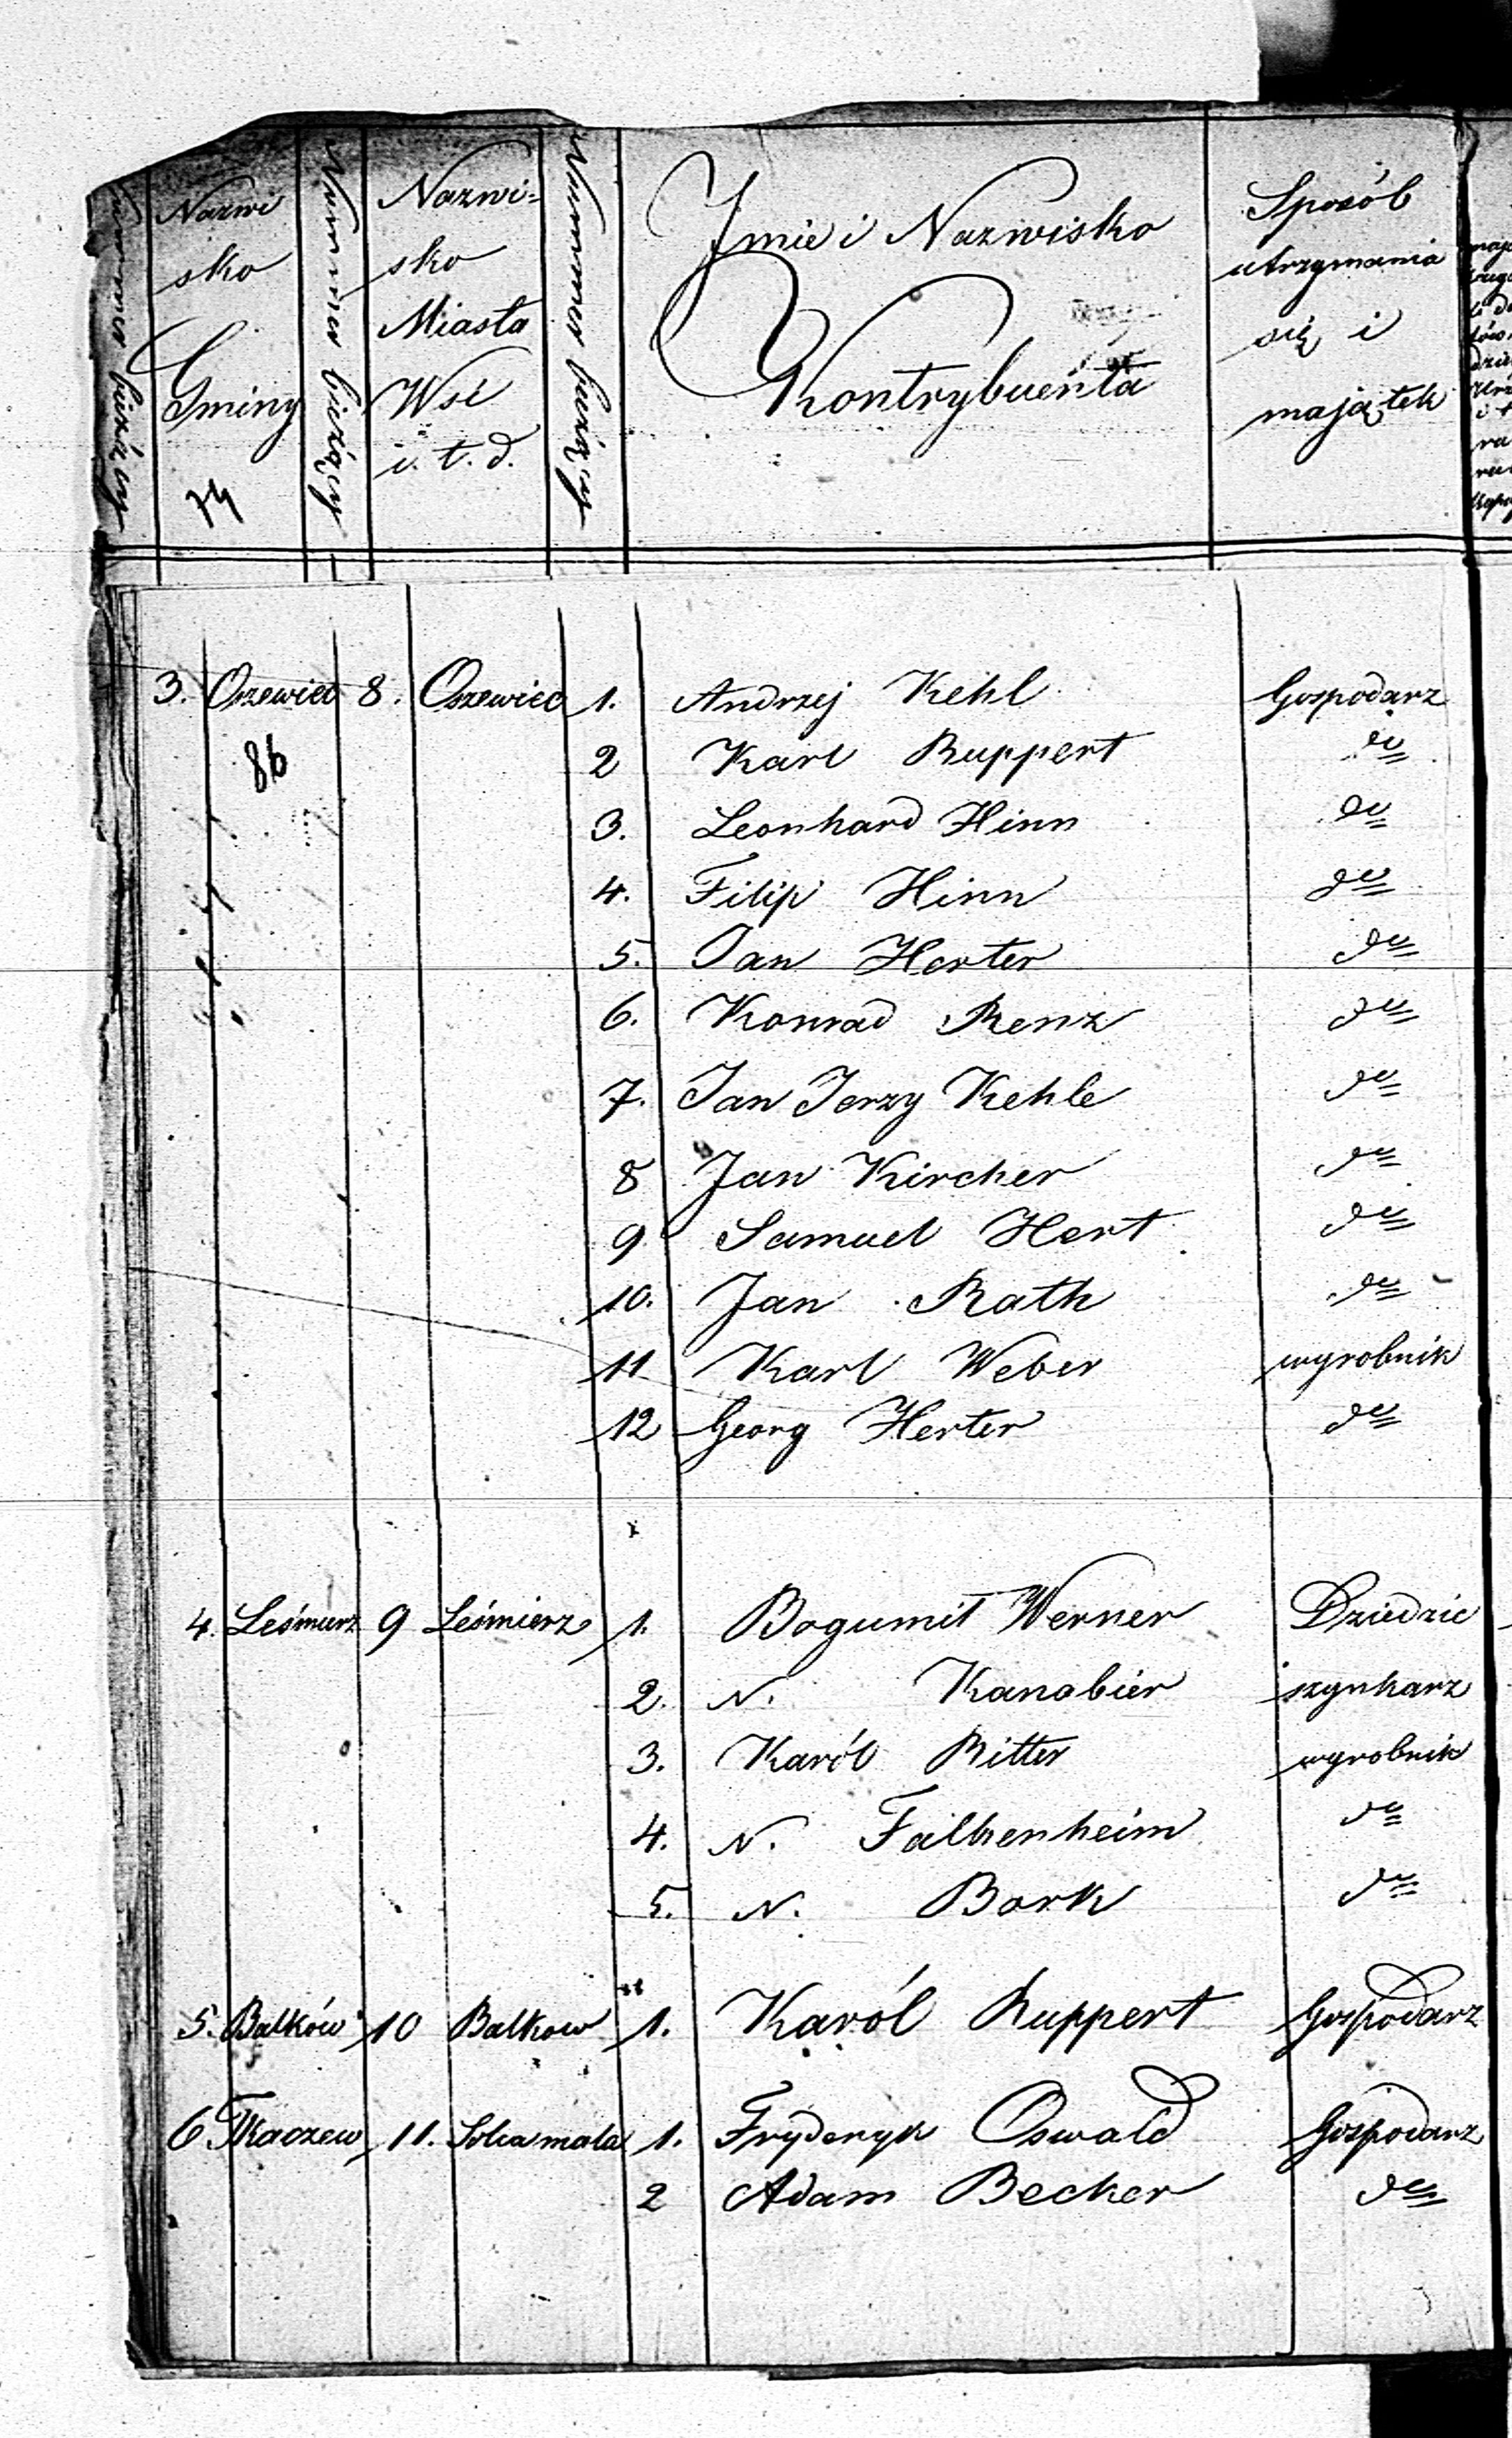 Numer bieżący
Nazwi
sko
Gminy
74
Numer bieżący
Nazwi=
sko
Miasta
Wsi
i. t. d.
Numer bieżący
Jmie i Nazwisko
Kontrybuenta
Sposób
utrzymania
się i
majątek
3. Oszewiec 8. Oszewiec 1. Andrzej Kehl Gospodarz
86
2 Karl Ruppert do
3. Leonhard Hinn do
4. Filip Hinn do
5. Jan Herter do
6. Konrad Renz do
7. Jan Jerzy Kehle do
8 Jan Kircher do
9 Samuel Hert do
10. Jan Rath do
11 Karl Weber wyrobnik
12 Georg Herter do
4. Leśmierz 9 Leśmierz 1. Bogumił Werner Dziedzic
2. N. Kanabier szynkarz
3. Karól Ritter wyrobnik
4. N. Falkenheim do
5. N. Bork do
5. Balków 10 Balkow 1. Karól Ruppert Gospodarz
6 Tkaczew 11. Solca mała 1. Fryderyk Oswald Gospodarz
2 Adam Becker do